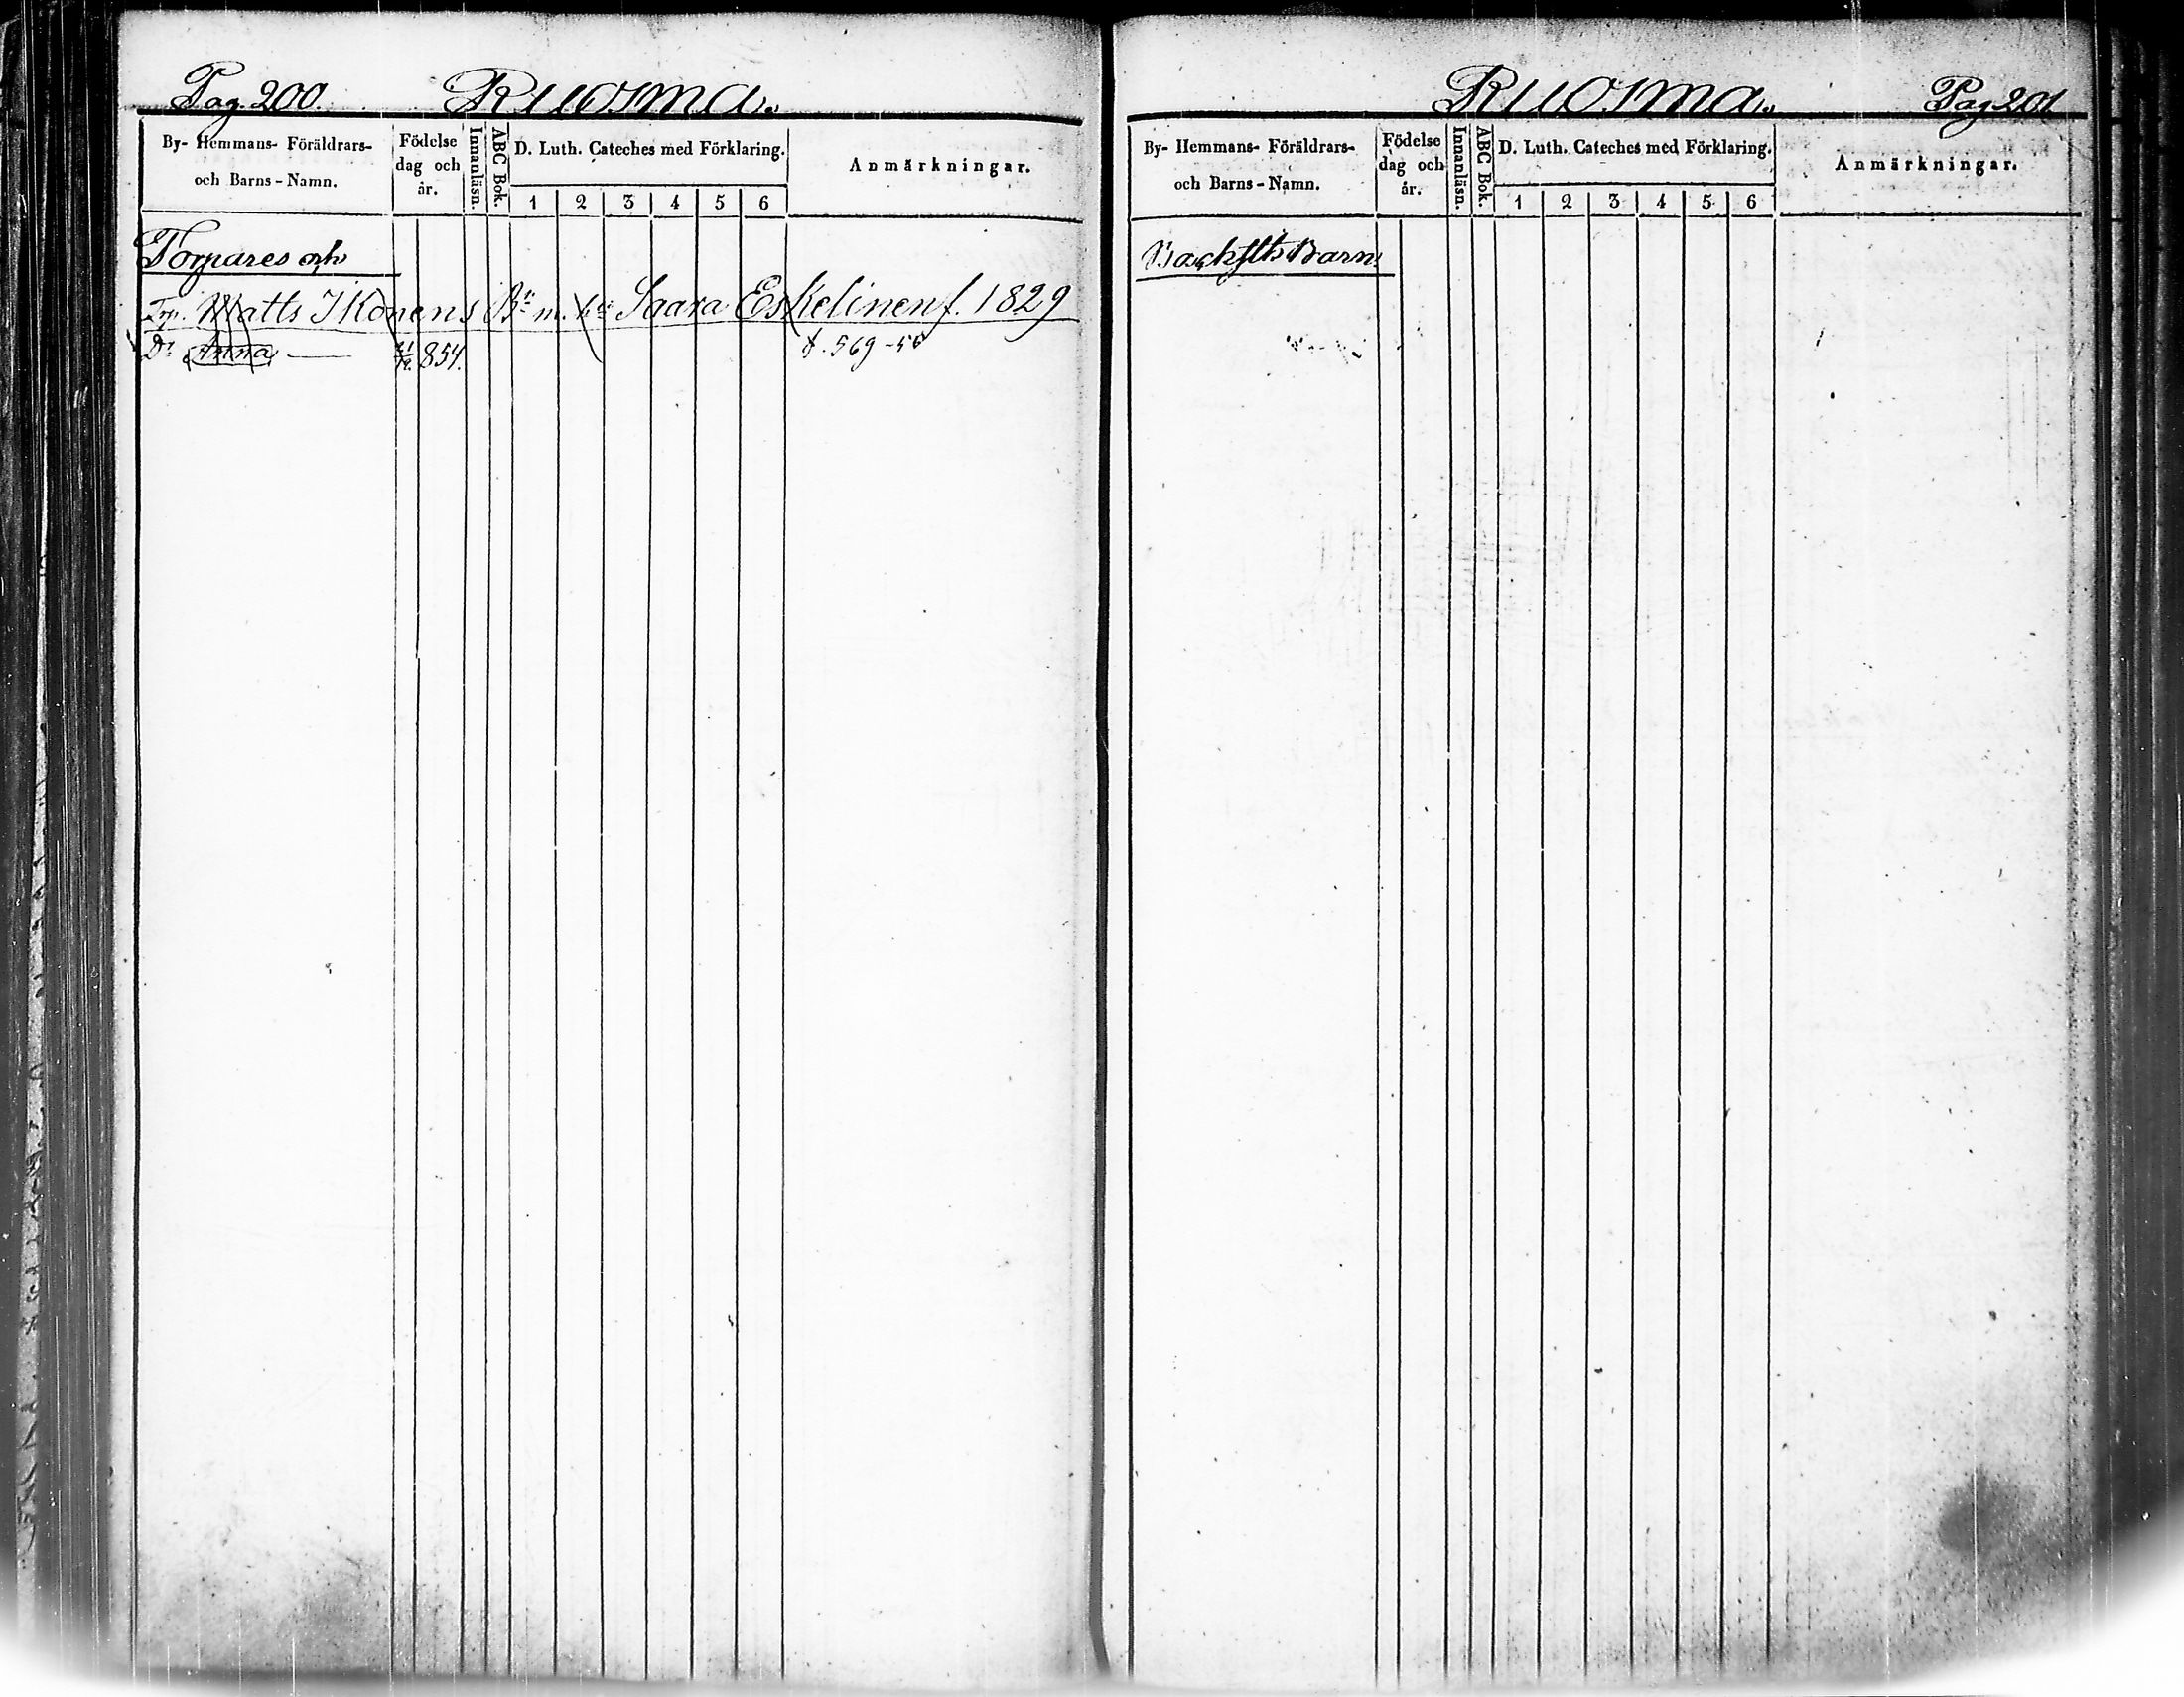 Pag. 200. Ruosma.
By- Hemmans- Föräldrars- och Barns-Namn.
Födelse dag och år.
Innanläsn.
ABC Bok.
D. Luth. Cateches med Förklaring.
1 2 3 4 5 6
Anmärkningar.
Torpares och
Torp. Matts Ikonens Bn m. hu Saara Eskelinen f. 1829
Dr Anna — 854. 569-56
Ruosma. Pag 201
By- Hemmans- Föräldrars- och Barns-Namn.
Födelse dag och år.
Innanläsn.
ABC Bok.
D. Luth. Cateches med Förklaring.
1 2 3 4 5 6
Anmärkningar.
Backsths Barn